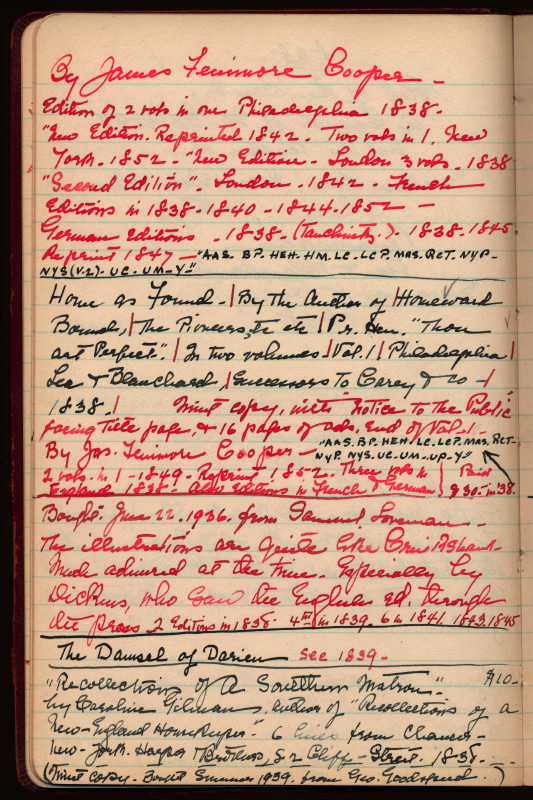 By James Fenimore Cooper -
Edition of 2 vols in one Philadelphia 1838-
"New Edition. Reprinted 1842 - Two vols in 1. New
York - 1852 - "New Edition - London 3 vols - 1838
"Second Edition". London - 1842 - French
Editions in 1838-1840-1844-1852 -
German editions - 1838-(Tauchnitz.)-1838-1845
Reprint 1847 - "AAS. BP. HEH. HM. LC. LCP. MAS. RCT. NYP-
NYS(V.2)- UC- UM- Y-"
Home as Found -| By the Author of | Homeward
Bound,| The Pioneers, &c &c | P.r. Hen. "Thou
art Perfect". | In two volumes | Vol. I | Philadelphia |
Lea & Blanchard, | Successors To Carey & Co -|
1838.| Mint copy, with "Notice to the Public"
facing title page, & 16 pages of ads. End of Vol. I -
By Jas. Fenimore Cooper - "AAS. BP. HEH. LC. LCP. MAS. RCT-
NYP. NYS. UC. UM. UP. Y-"
2 vols. in 1 - 1849 - Reprint 1852 - Three vols in
England 1838 - Also editions in French & German
Paid
$30- in '38.
Bought June 22. 1936. from Samuel Loveman -
The illustrations are quite like Cruikshank -
Much admired at the time. Especially by
Dickens, who saw the English ed. through
the press 2 Editions in 1838 4th in 1839. 6 in 1841. 1843. 1845
The Damsel of Darien see 1839-
"Recollections of a Southern Matron". $10-
by Caroline Gilman, author of "Recollections of a
New-England Housekeeper" - 6 lines from Chaucer -
New-York. Harper & Brothers, 82 Cliff-Street. 1838. -
(Mint copy. Bought Summer 1939. from Geo. Goodspeed.)